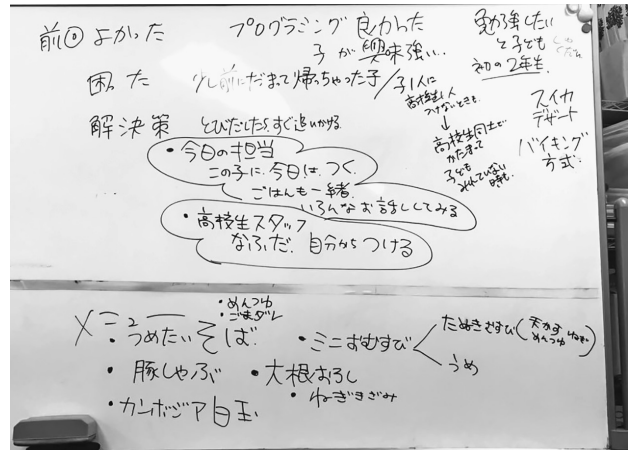 前回 よかった
プログラミング 良かった
子が 興味強い..
勉強したい
と子ども
初の2年生.
困った
少し前にだまって帰っちゃった子
子1人に
高校生1人
つけないときも.
↓
高校生同士で
かたまって
子ども
みれていない
時も.
スイカ
デザート
バイキング
方式.
解決策
とびだしたら、すぐ追いかける
・今日の担当
この子に.今日は.つく.
ごはんも一緒.
いろんなお話ししてみる
・高校生スタッフ
なふだ. 自分からつける
メニュー
・めんつゆ
・ごまダレ
・つめたいそば.
・ミニおむすび
たぬきむすび(天かす めんつゆ ねぎ)
うめ
・豚しゃぶ
・大根おろし
・ねぎきざみ
・カンボジア白玉